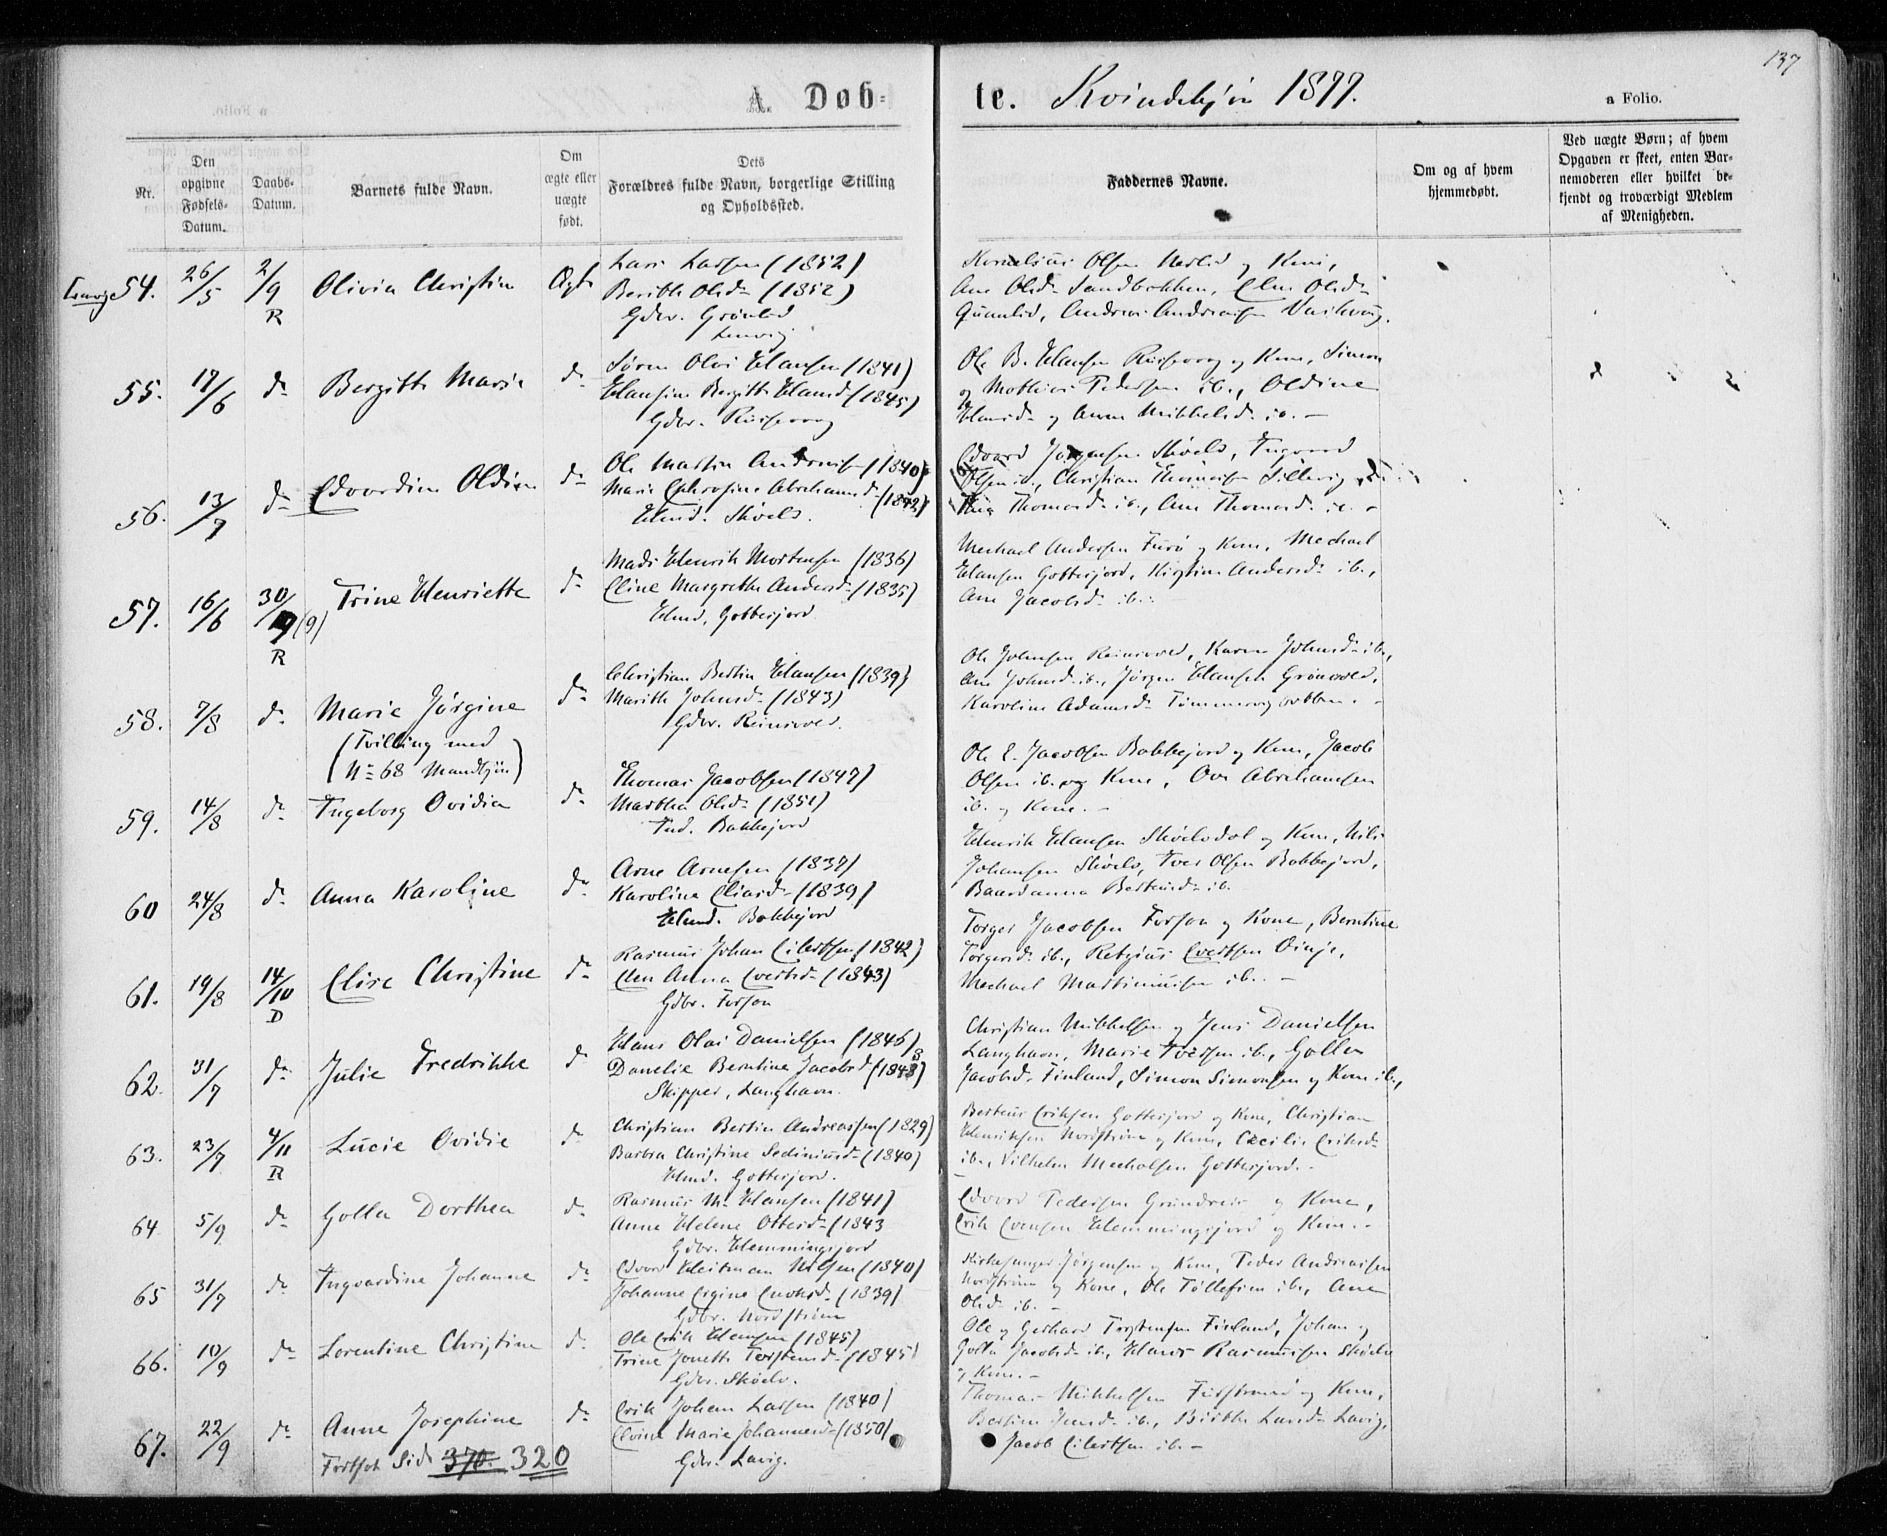 137
A. Døb=
te. Kvindekjøn 1877.
a Folio.
Nr.
Den opgivne Fødsels-Datum.
Daabs-Datum.
Barnets fulde Navn.
Om ægte eller uægte født.
Dets Forældres fulde Navn, borgerlige Stilling og Opholdssted.
Faddernes Navne.
Om og af hvem hjemmedøbt.
Ved uægte Børn; af hvem Opgaven er skeet, enten Barnemoderen eller hvilket bekjendt og troværdigt Medlem af Menigheden.
54. 26/5 2/9 R Olivia Christine Ægte
Lars Larsen (1852)
Berith Olsd. (1852)
Gdbr.
Kornelius Olsen og Kone,
Ane Olsd. Sandbakken, Olsd.
Andreas Andreasen
55. 17/6 do Bergitte Marie do
Søren Olai Hansen (1841)
Hansine Bergitte Hansd. (1845)
Gdbr.
Ole B. Hansen og Kone, Simon
og Mathias Pedersen ib., Oldine
Hansd. og Anne Mikkelsd. ib. —
56. 13/7 do Edvardine Oldine do
Ole Martin Andreasen (1840)
Marie Ephrosine Abrahamsd. (1842)
Hmd. Skøelv.
Edvard Jørgensen Skøelv, Ingvard
Olsen ib., Christian
Thomasd. ib., Ane Thomasd. ib. —
57. 16/6 30/9 (9) R Trine Henriette do
Mads Henrik Mortensen (1836)
Eline Margrethe Andersd. (1835)
Hmd. Gottesjord
Mechael Andersen Furø og Kone, Mechael
Hansen Gottesjord, Kirstine Andersd. ib.,
Ane Jacobsd. ib.
58. 7/8 do Marie Jørgine do
(Tvilling med
No 68 Mandkjøn)
Christian Bertin Hansen (1839)
Marith Johnsd. (1843)
Gdbr. Reinsvold.
Ole Johnsen Reinsvold, Karen Johnsd. ib.,
Ane Johnsd. ib., Jørgen Hansen Grønvold,
Karoline Adamsd.
59. 14/8 do Ingeborg Ovidia do
Thomas Jacobsen (1847)
Martha Olsd. (1851)
Ind. Bakkejord
Ole E. Jacobsen Bakkejord og Kone, Jacob
Olsen ib. og Kone, Ove Abrahamsen
ib. og Kone. —
60 24/8 do Anna Karoline do
Arne Arnesen (1837)
Karoline Eliasd. (1839)
Hmd. Bakkejord
Henrik Hansen Skøelvdal og Kone, Nils
Johansen Skøelv, Iver Olsen Bakkejord,
Baardanna ib.
61. 19/8 14/10 D Elise Christine do
Rasmus Johan Eilertsen (1842)
Elen Anna Evertsd. (1843)
Gdbr. Forsøa
Torger Jacobsen Forsøa og Kone, Berntine
Torgersd. ib., Retzius Evertsen Øinje,
Mechael Martinussen ib. —
62. 31/7 do Julie Fredrikke do
Hans Olai Danielsen (1846)
Danelie Berntine Jacobsd. (1848)
Skipper, Langhavn.
Christian Mikkelsen og Jens Danielsen
Langhavn, Marie Iversen ib., Golla
Jacobsd. Finland, Simon Simonsen og Kone ib.,
63. 23/7 4/11 R Lucie Ovidie do
Christian Bertin Andreassen (1829)
Barbra Christine Sediniusd. (1840)
Hmd. Gottesjord.
Berteus Eriksen Gottesjord og Kone, Christian
Henriksen Nordstrøm og Kone, Cecilie Eriksd.
ib., Vilhelm Mecholsen Gottesjord. —
64 5/9 do Golla Dorthea do
Rasmus M. Hansen (1841)
Anne Helene Ottesd. (1843
Gdbr. Hemmingsjord
Edvard Pedersen Grundreis og Kone,
Erik Evensen Hemmingsjord og Kone. —
65 31/7 do Ingvardine Johanne do
Edvard Heitman Nilsen (1840)
Johanne Ergine Enoksd. (1839)
Gdbr. Nordstrøm
Kirkesanger Jørgensen og Kone, Peder Andreasen
Nordstrøm og Kone, Ole Tollefsen ib., Ane
Olsd. ib. —
66. 10/9 do Lorentine Christine do
Ole Erik Hansen (1845)
Trine Jonette Torstensd. (1845)
Gdbr. Skøelv.
Ole og Gerhard Torstensen Finland, Johan og
Golla Jacobsd. ib., Hans Rasmussen Skøelv
og Kone. —
67. 22/9 do Anne Josephine do
Erik Johan Larsen (1840)
Elvine Marie Johannesd. (1850)
Gdbr. Lavig.
Thomas Mikkelsen og Kone,
Jensd. ib., Birthe Larsd. Lavig,
Jacob Eilertsen ib. —
Fortsat Side 370. 320